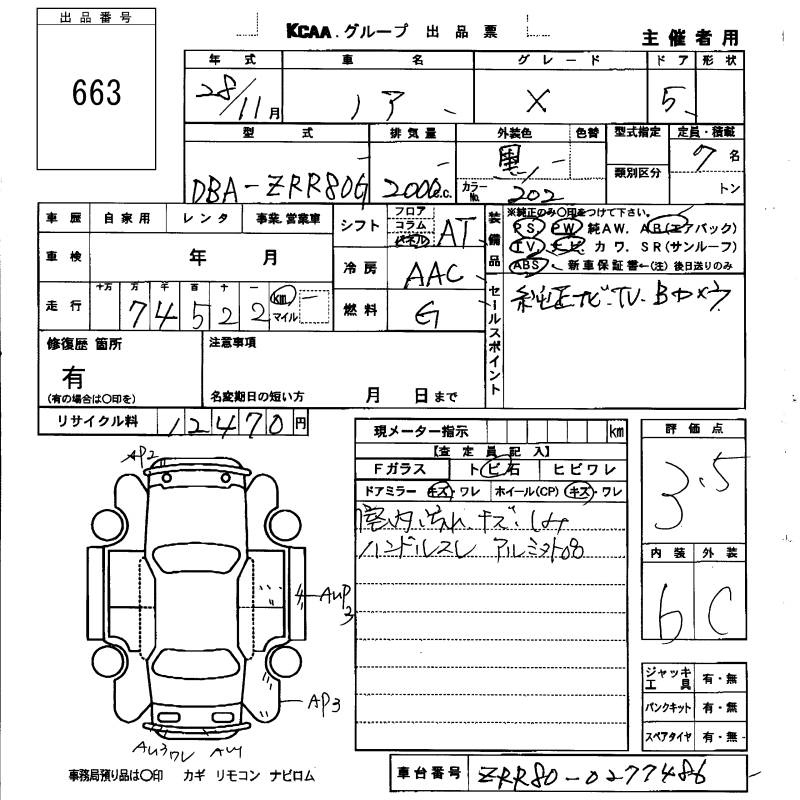 出品番号
663
KCAA.グループ 出品票
主催者用
年式 車名 グレード ドア 形状
28/11月 ノア X 5
型式 排気量 外装色 色替 型式指定 定員・積載
DBA-ZRR80G 2000c.c. 黒 カラーNo. 202 類別区分 7名
トン
車歴 自家用 レンタ 事業.営業車
車検 年 月
走行 十万 万 千 百 十 一 km マイル
74522
シフト フロア コラム パネル AT
冷房 AAC
燃料 G
装備品
※純正のみ〇印をつけて下さい。
PS. PW 純AW. AB(エアバック)
TV. ナビ カワ. SR(サンルーフ)
ABS 新車保証書←(注)後日送りのみ
セールスポイント
純正ナビ.TV.Bカメラ
修復歴 箇所
有
(有の場合は〇印を)
注意事項
名変期日の短い方 月 日まで
リサイクル料 12470円
現メーター指示 km
【査定員記入】
Fガラス トビ石 ヒビワレ
ドアミラー キズ・ワレ ホイール(CP) キズ・ワレ
室内汚れ.キズ.しみ
ハンドルスレ
評価点
3.5
内装 外装
6 C
AP2
AUP3
AP3
AU3ワレ AU1
ジャッキ工具 有・無
パンクキット 有・無
スペアタイヤ 有・無
事務局預り品は〇印 カギ リモコン ナビロム
車台番号 ZRR80-0277486